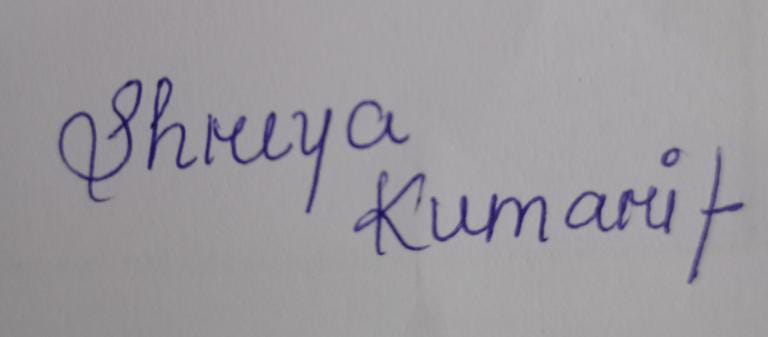 Shreya
Kumari